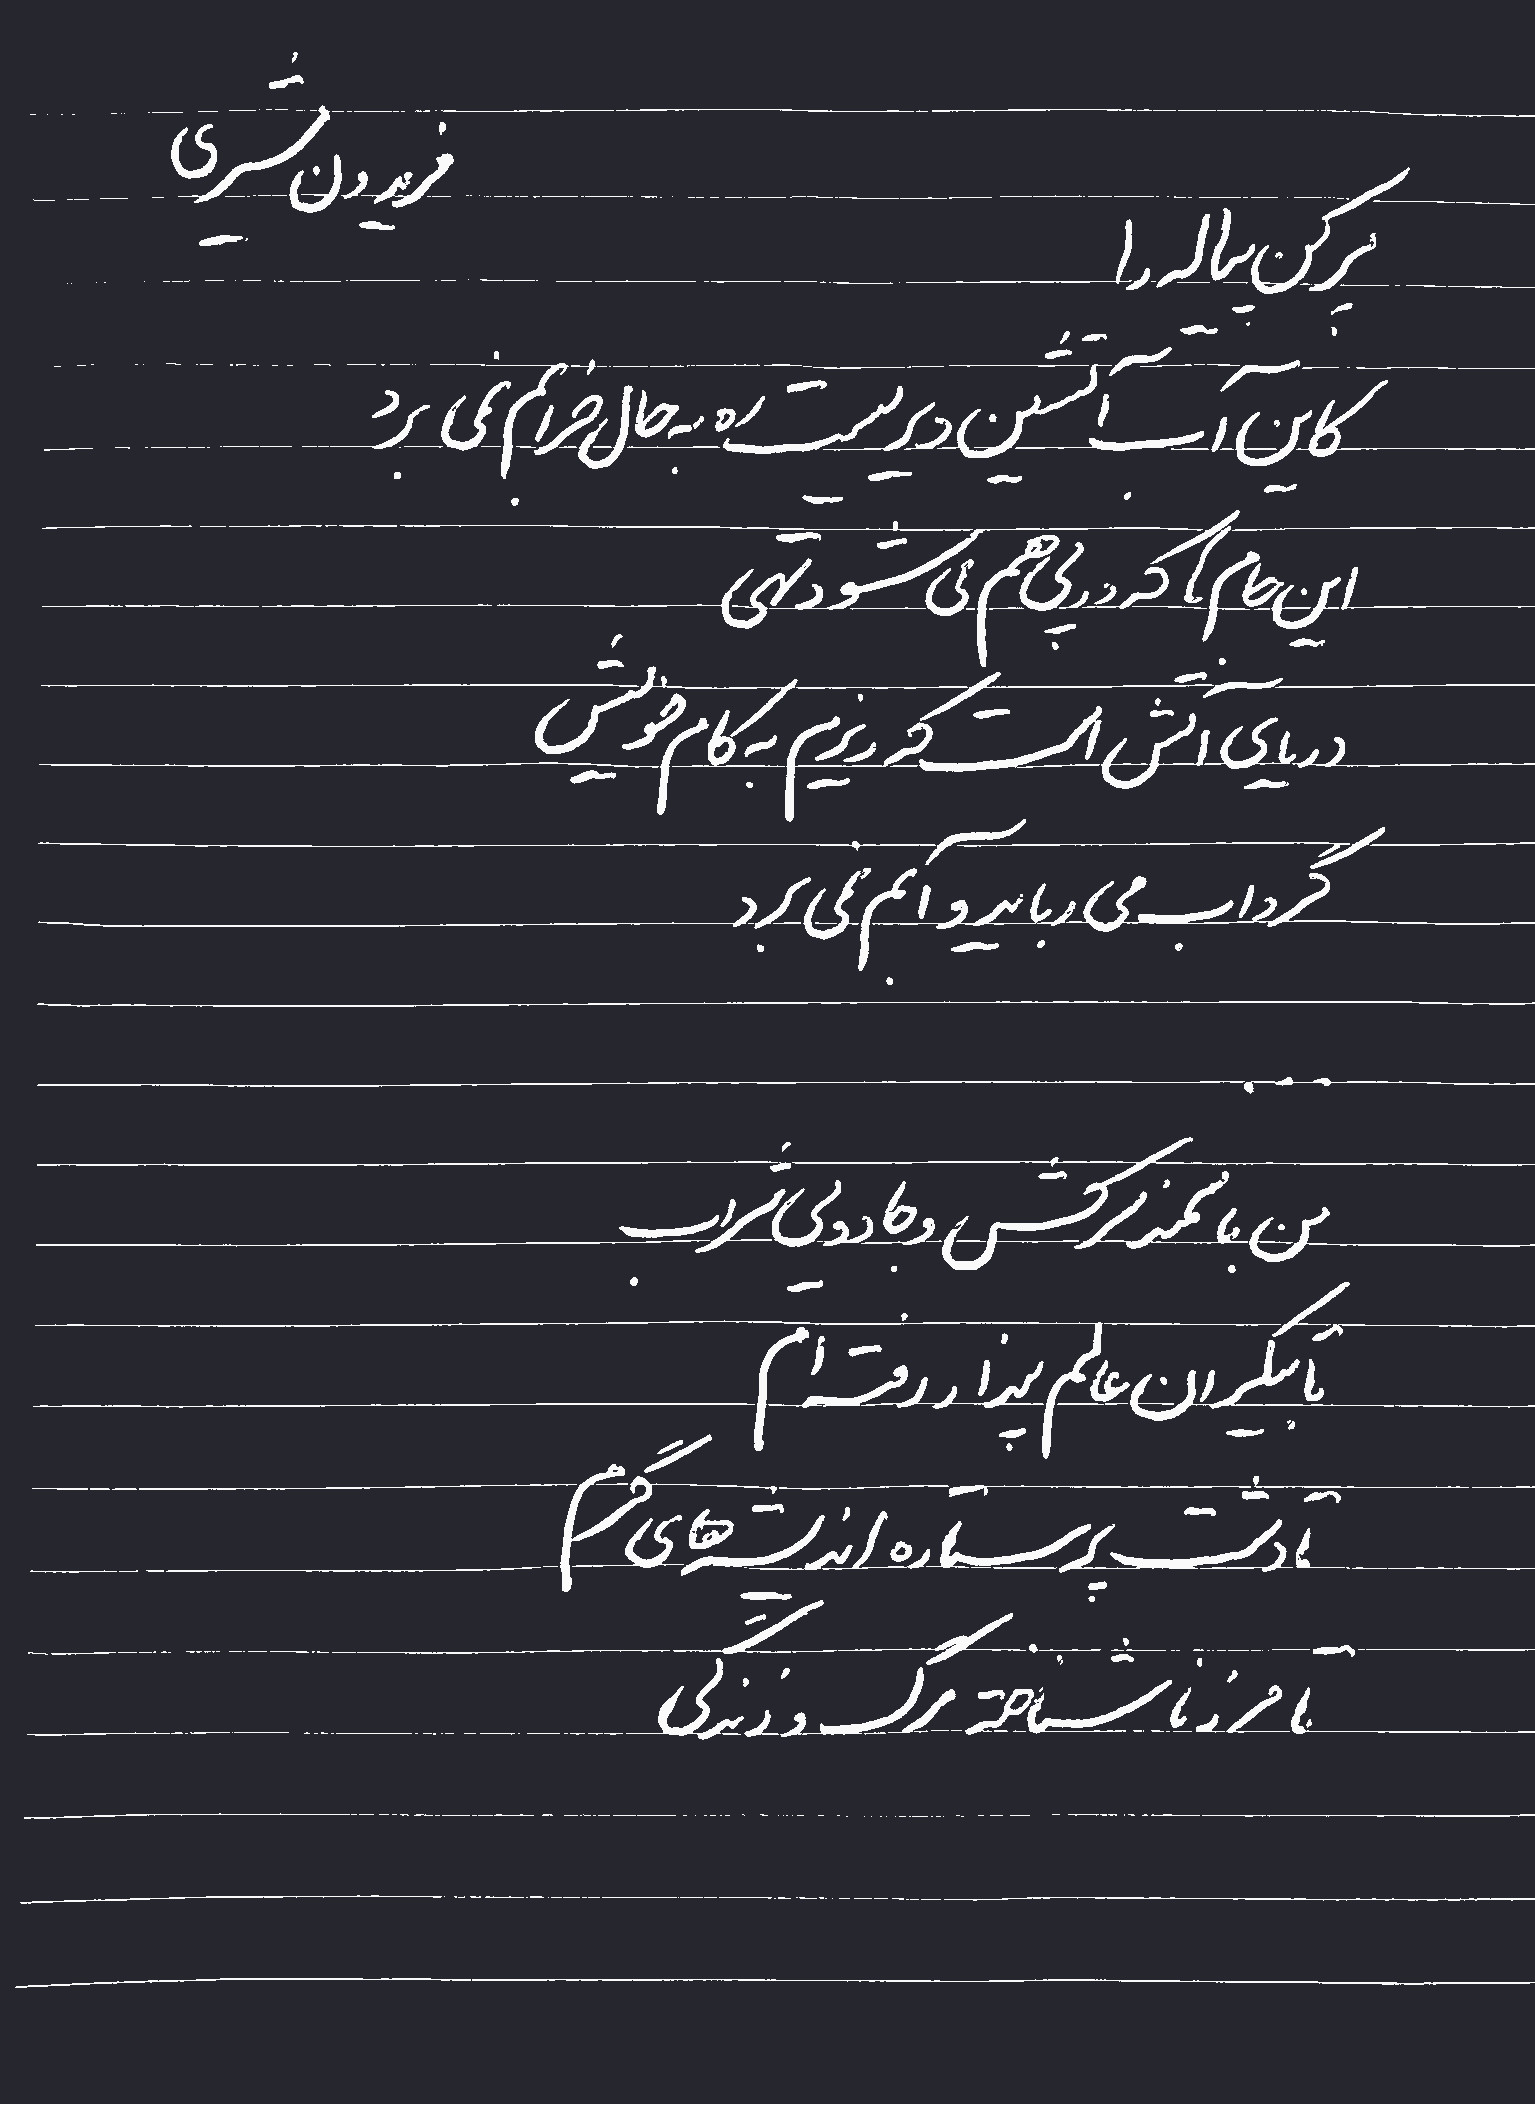 فریدون مشیری
پر کن پیاله را
کاین آب آتشین دیریست ره به حال خرابم نمی برد
این جام ها که در پی هم می شود تهی
دریای آتش است که ریزم به کام خویش
گرداب می رباید و آبم نمی برد
...
من با سمند سرکش و جادویی شراب
تا بیکران عالم پندار رفته ام
تا دشت پر ستاره اندیشه های گرم
تا مرز ناشناخته مرگ و زندگی